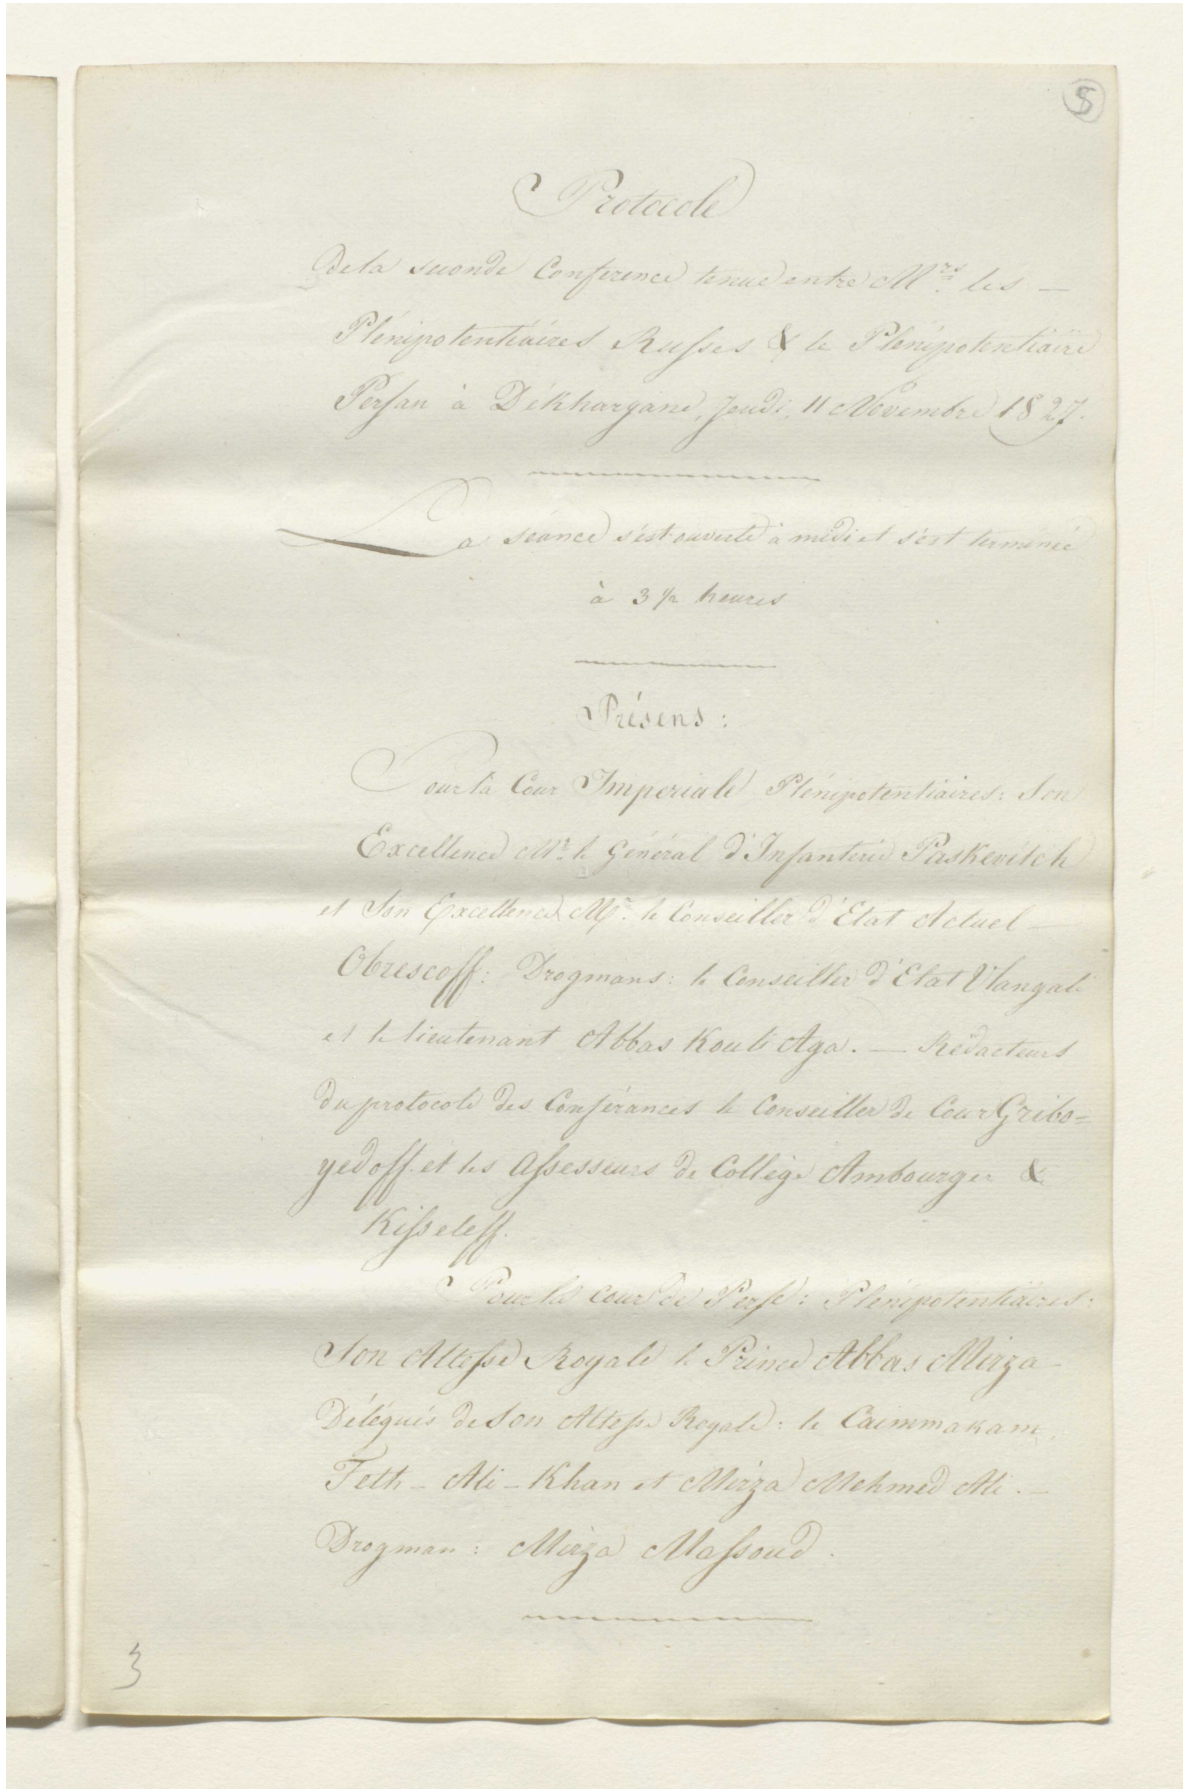 5
Protocole
De la seconde Conference tenue entre Mrs. les —
Plénipotentiaires Russes & le Plénipotentiaire
Persan à Dékhargane, Jeudi, 11 Novembre 1827.
La séance s'est ouverte à midi et s'est terminée
à 3 1/2 heures
Présens :
Pour la Cour Imperiale Plénipotentiaires : Son
Excellence Mr. le Général d'Infanterie Paskevitch
et Son Excellence Mr. le Conseiller d'Etat Actuel —
Obrescoff : Drogmans : le Conseiller d'Etat Vlangali
et le lieutenant Abbas Kouli Aga. — Rédacteurs
du protocole des Conférances le Conseiller de Cour Gribo=
yedoff. et les Assesseurs de Collège Ambourger &
Kisseleff.
Pour la Cour de Perse : Plénipotentiaires :
Son Altesse Royale le Prince Abbas Mirza —
Délégués de Son Altesse Royale : le Caimmakam,
Feth - Ali - Khan et Mirza Mehmed Ali. —
Drogman : Mirza Massoud.
3